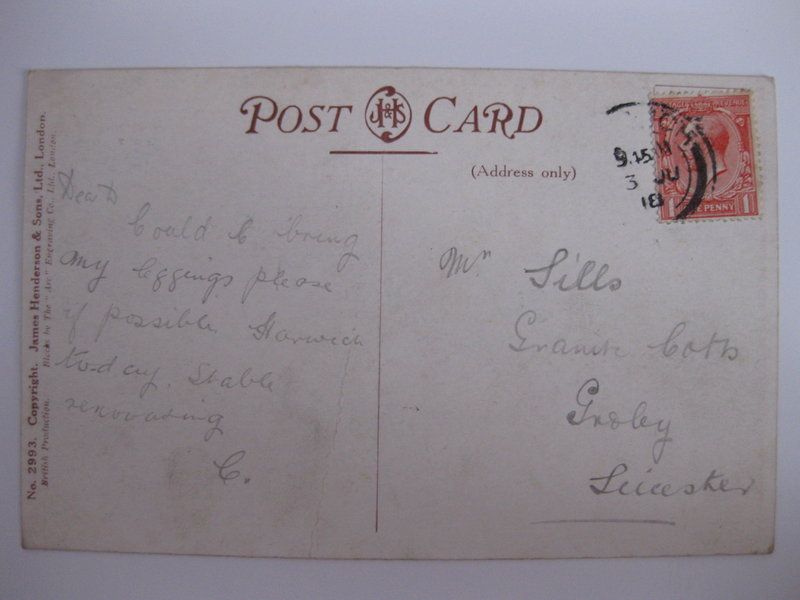 POST J.H&S CARD
(Address only)
9.15
3 JU
18
1 PENNY 1
Dear D
Could C bring
my leggings please
if possible. Harwich
to-day. Stable
renovating
C.
Mrs Sills
Granite Cotts
Groby
Leicester
No. 2993. Copyright. James Henderson & Sons, Ltd., London.
British Production. Blocks by The "Arc" Engraving Co., Ltd., London.